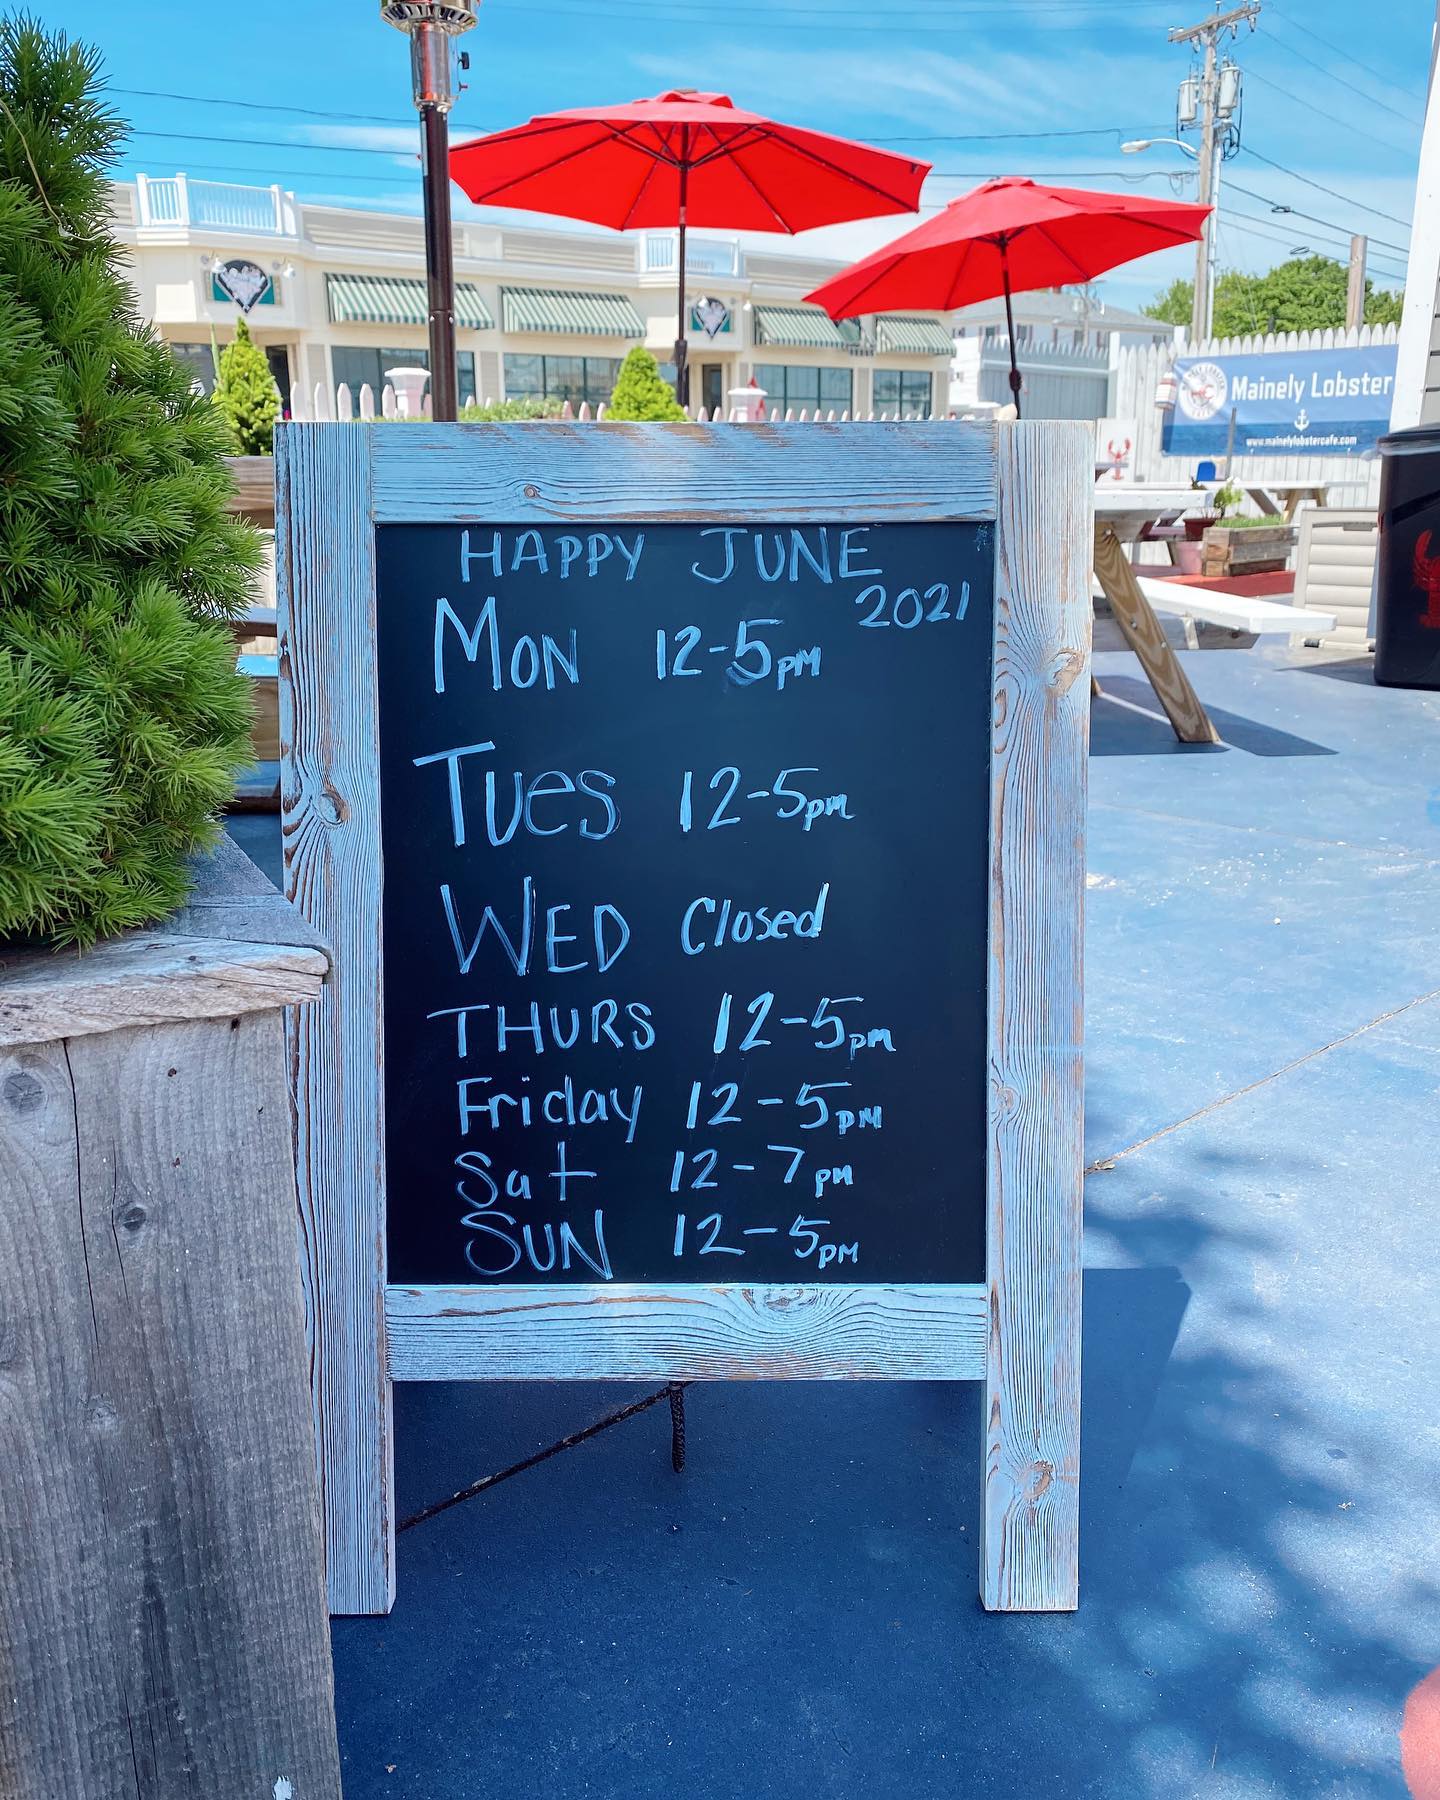 Mainely Lobster
www.mainelylobstercafe.com
HAPPY JUNE
2021
MON 12-5PM
TUes 12-5pm
WED Closed
THURS 12-5pm
Friday 12-5PM
Sat 12-7pm
SUN 12-5PM